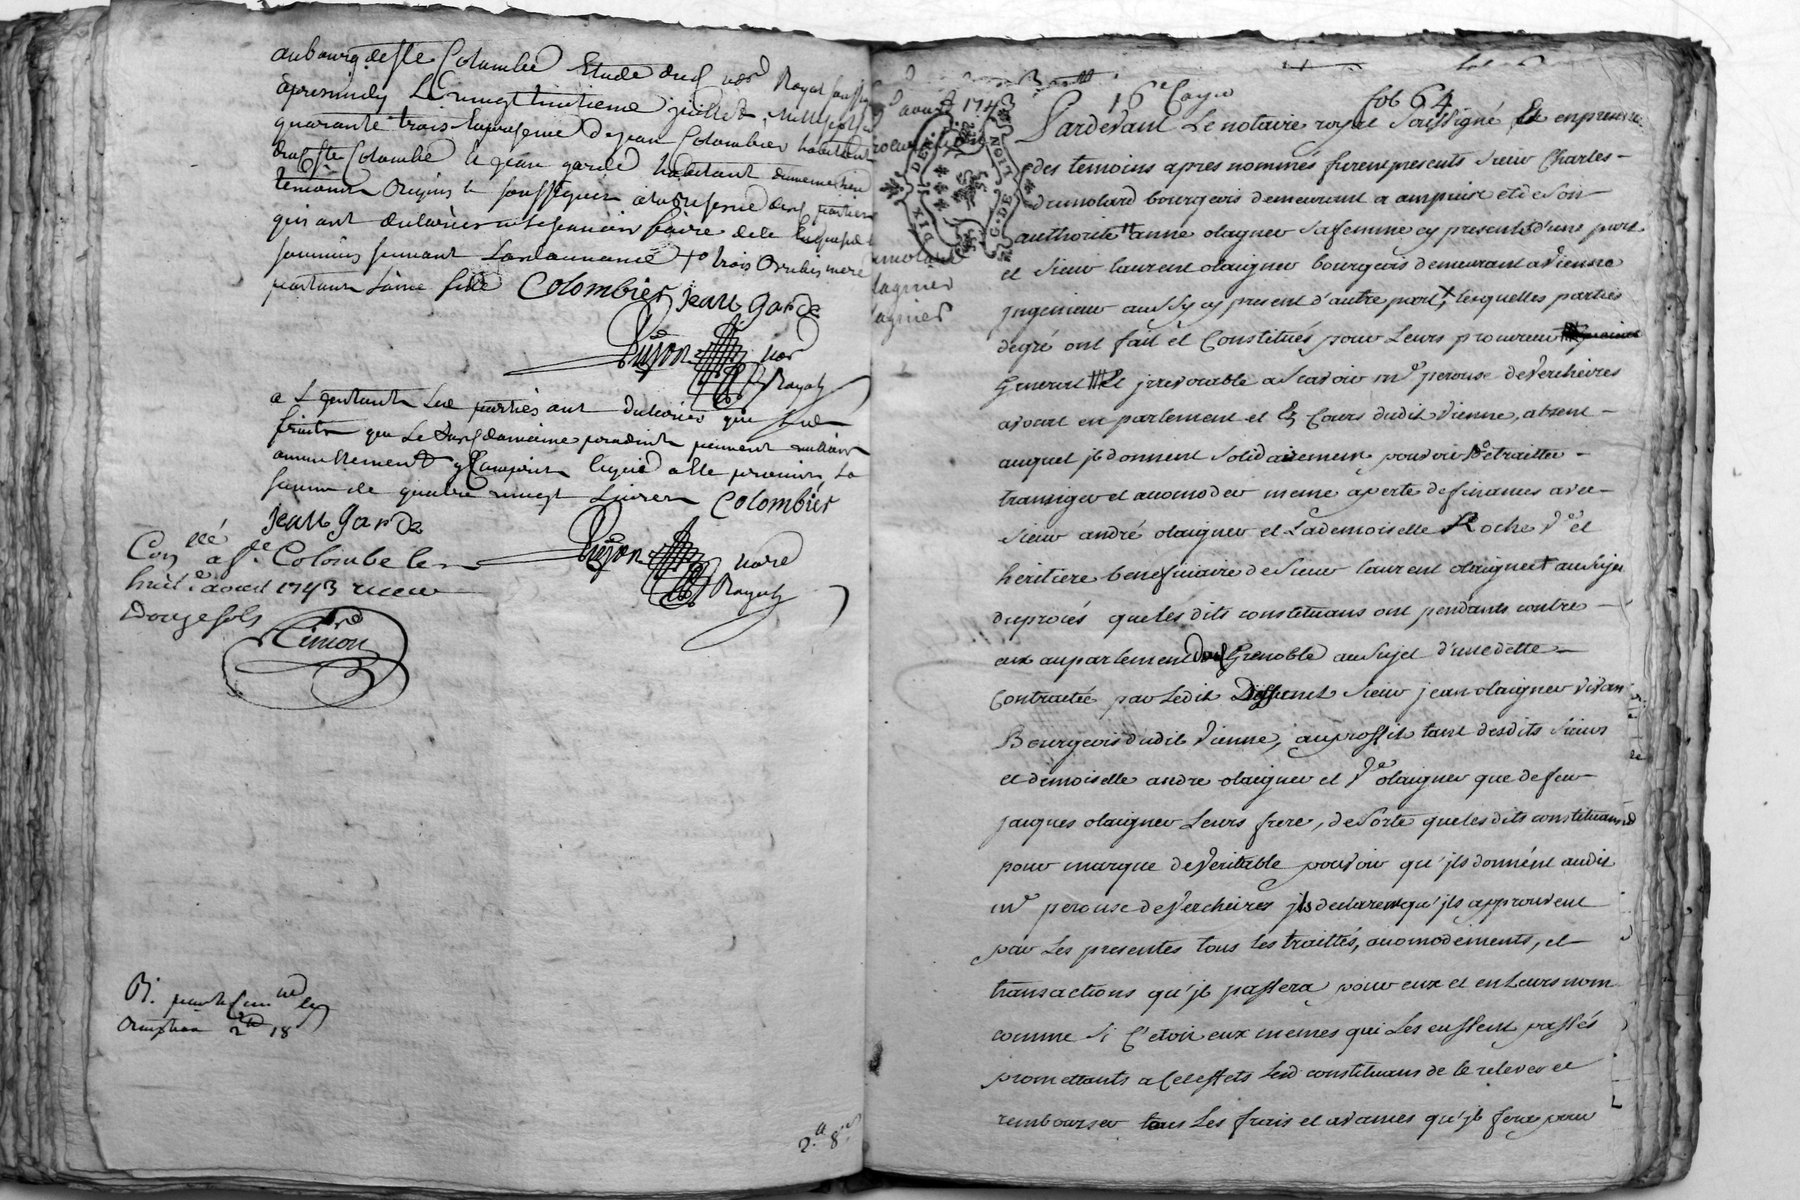 au bourg de Ste Colombe Etude dud nore Royal
apresmidy Le vingt huitieme juillet, mil sept cent
quarante trois En presence De jean Colombier habitant
dud Ste Colombe & jean garde habitant du meme lieu
temoins requis & soussignés avec
qui ont declaré
suivant Lordonnance +o trois
partant
Colombier jean garde
Dujon nore
Royal
a L ajoutant Les parties ont declaré que Les
fruits que Le Dud domaine produit peuvent valloir
annuellement y Compris la
somme de quatre vingt Livres Colombier
jean garde
Dujon nore
Royal
Conllé a Ste Colombe le
huit e aoust 1743 receu
Douze sols
Simon
2 18
2. 8
aoust 1743
procuration
dumolard
olagnier
olagnier
DIX DEN. G. DE LION
16e Cayer
fol 64
Pardevant Le notaire royal soussigné, Et en presence
des temoins apres nommés furent presents sieur Charles
dumolard bourgeois demeurant a ampuise et de son
authorité anne olagnier sa femme cy presente d'une part
et sieur laurent olaignier bourgeois demeurant a Vienne
ingenieur aussy cy present d'autre part, + lesquelles parties
degré ont fait et Constitués pour Leurs procureur
General & jrrevocable a scavoir me perouse de Vercheires
avocat en parlement et Es Cours dudit Vienne, absent
auquel jls donnent solidairement pouvoir De traitter
transiger et accomoder meme a perte de finances avec
sieur andré olaignier et La demoiselle Roche Ve et
heritiere beneficiaire de sieur laurent olaignier au sujet
du procés que les dits constituans ont pendants contre
eux au parlement Dud Grenoble au sujet d'une dette
Contractée par Le dit Deffunt sieur jean olaignier vivant
Bourgeois dudit Vienne, au proffit tant desdits sieur
et demoiselle andre olaignier et Ve olaignier que de feu
jacques olaignier Leurs frere, de sorte que les dits constituans
pour marque de Veritable pouvoir qu'jls donnent audit
me perouse de Vercheires jls declarent qu'jls approuvent
par Les presentes tous les traittés, accomodements, et
transactions qu'jl passera pour eux et en Leurs nom
comme si C'etoit eux memes qui Les eussent passés
promettants a Cet effets Lesd constituans de le relever et
rembourser tous Les frais et avances qu'jl fera pour